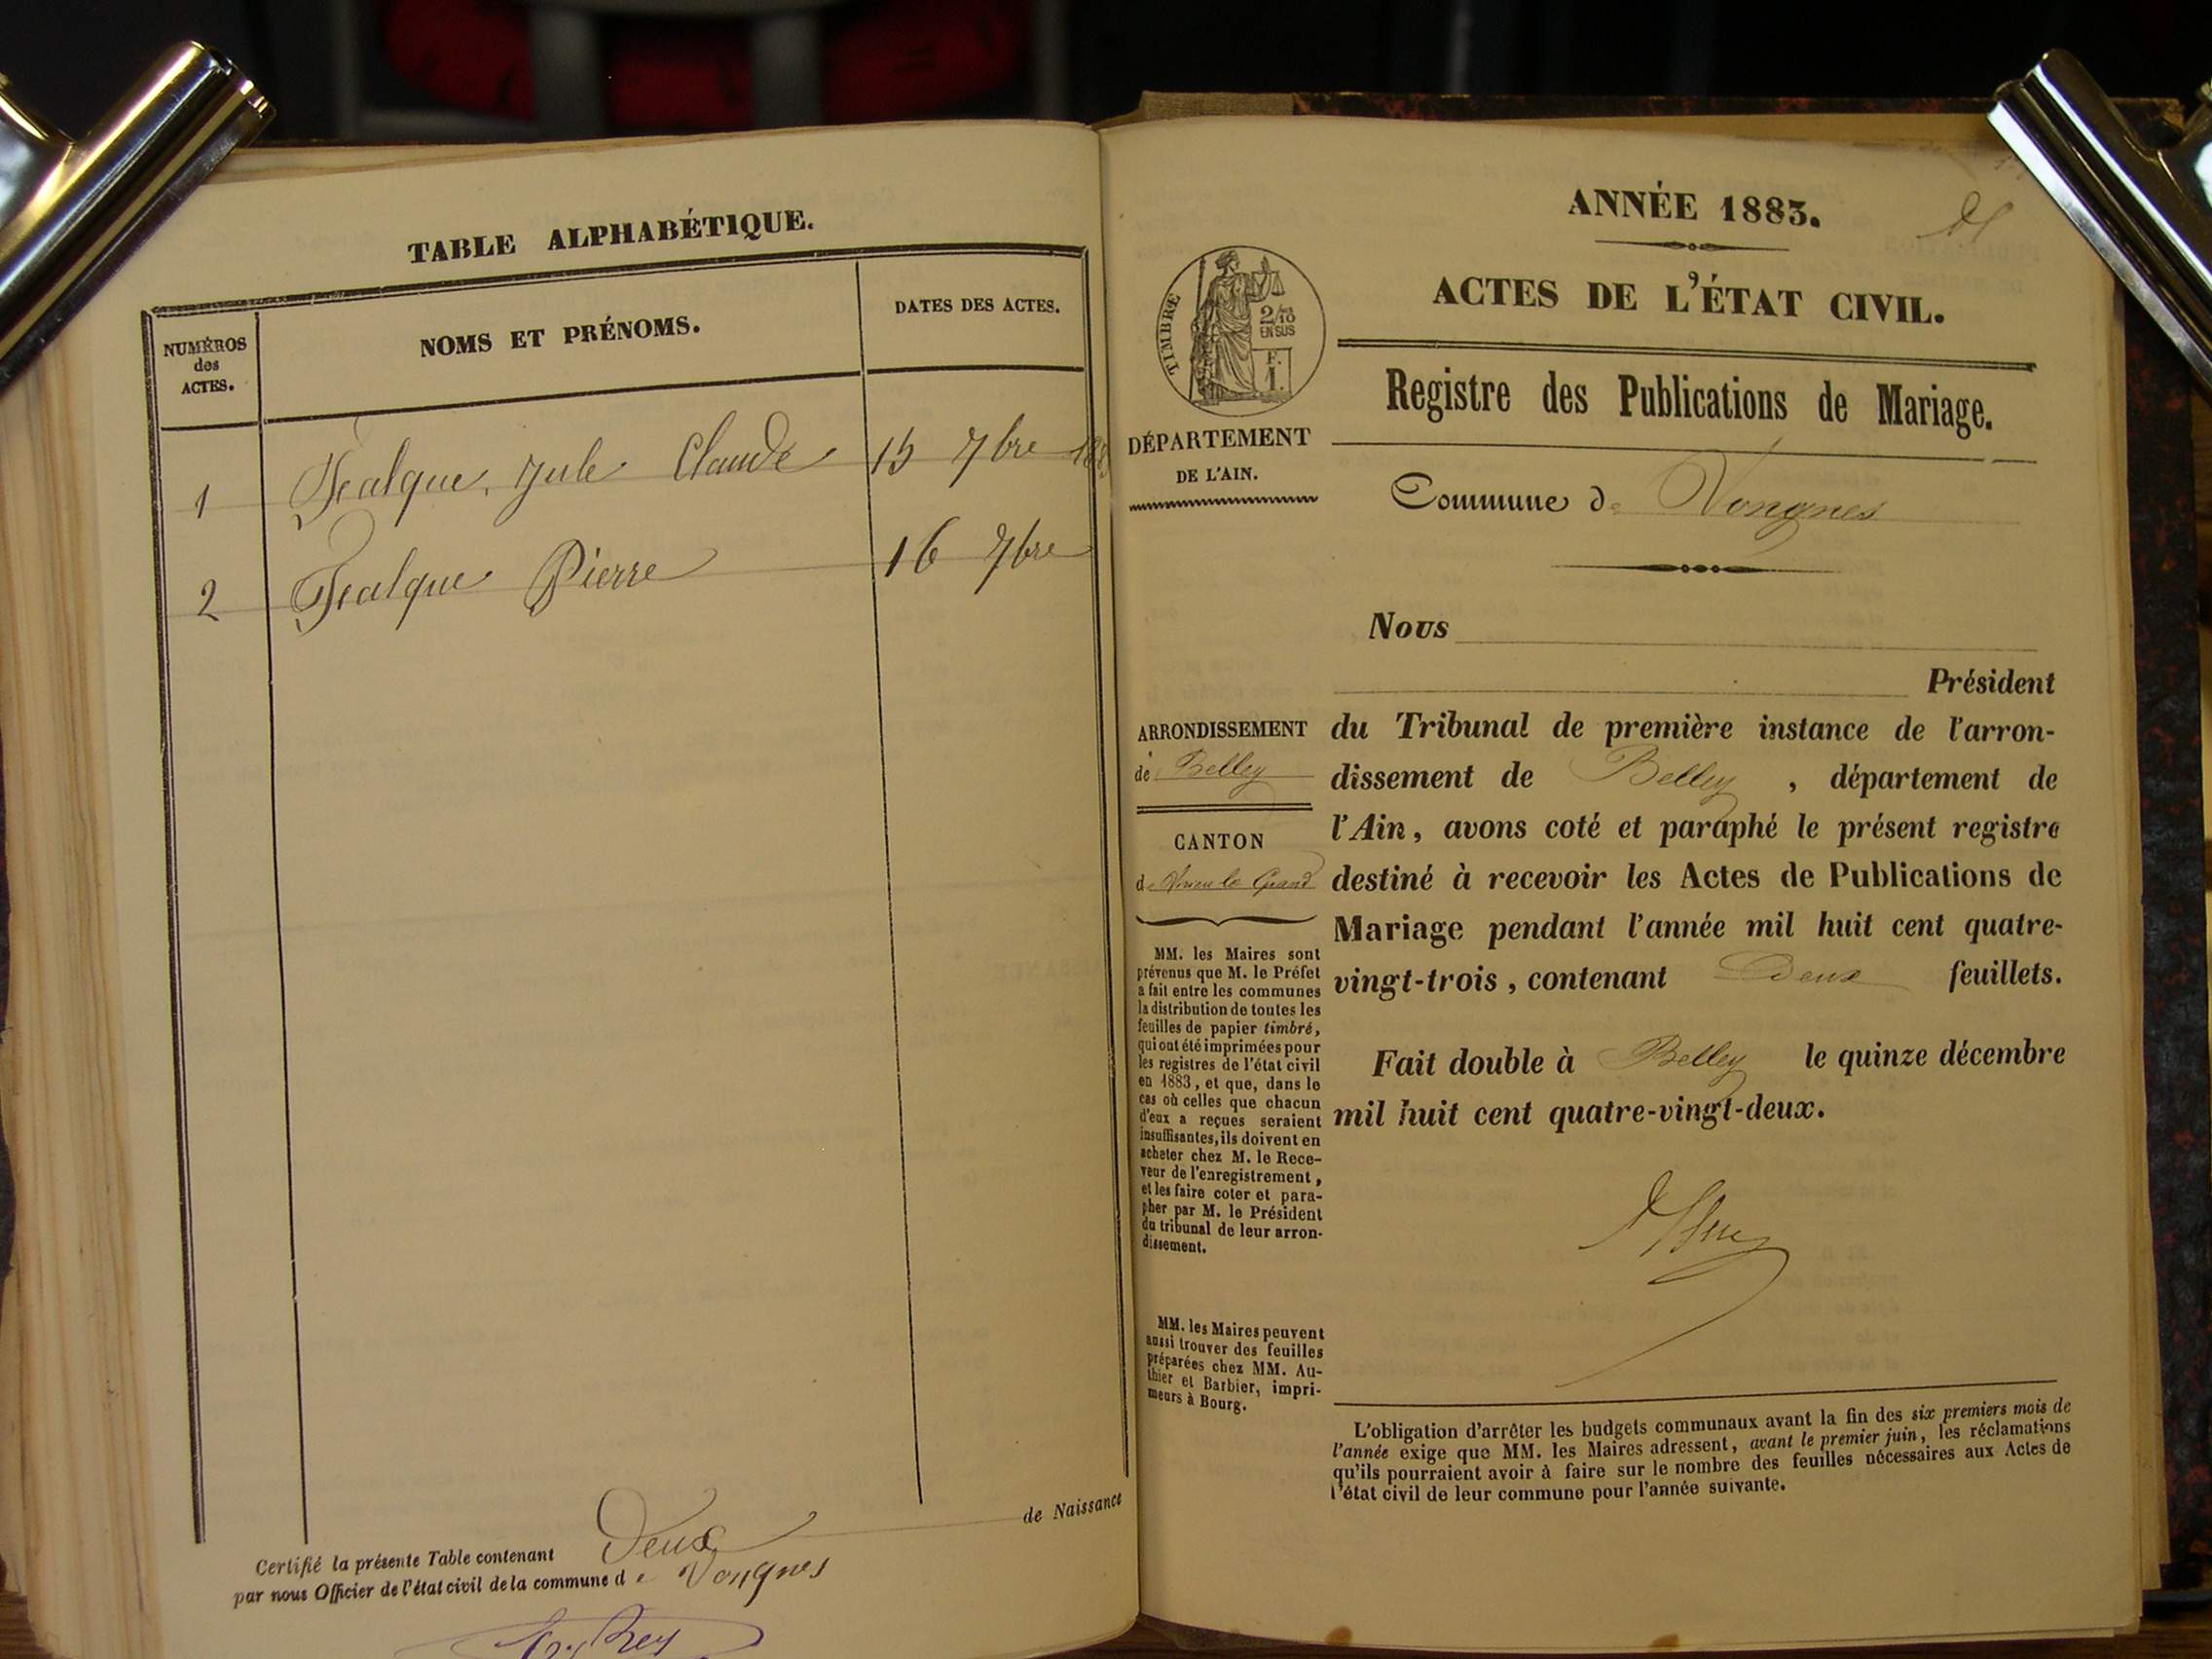 TABLE ALPHABÉTIQUE.
NUMÉROS
des
ACTES.
NOMS ET PRÉNOMS.
DATES DES ACTES.
1 Jule Claude 15 7bre 188
2 Pierre 16 7bre
Certifié la présente Table contenant Deux de Naissance
par nous Officier de l'état civil de la commune de Vongnes
Rey
ANNÉE 1883.
ACTES DE L'ÉTAT CIVIL.
TIMBRE
2/10
EN SUS
F.
1.
Registre des Publications de Mariage.
DÉPARTEMENT
DE L'AIN.
Commune de Vongnes
Nous
Président
ARRONDISSEMENT
de Belley
CANTON
de Virieu le Grand
MM. les Maires sont
prévenus que M. le Préfet
a fait entre les communes
la distribution de toutes les
feuilles de papier timbré,
qui ont été imprimées pour
les registres de l'état civil
en 1883, et que, dans le
cas où celles que chacun
d'eux a reçues seraient
insuffisantes, ils doivent en
acheter chez M. le Rece-
veur de l'enregistrement,
et les faire coter et para-
pher par M. le Président
du tribunal de leur arron-
dissement.
MM. les Maires peuvent
aussi trouver des feuilles
préparées chez MM. Au-
thier et Barbier, impri-
meurs à Bourg.
du Tribunal de première instance de l'arron-
dissement de Belley, département de
l'Ain, avons coté et paraphé le présent registre
destiné à recevoir les Actes de Publications de
Mariage pendant l'année mil huit cent quatre-
vingt-trois, contenant Deux feuillets.
Fait double à Belley le quinze décembre
mil huit cent quatre-vingt-deux.
L'obligation d'arrêter les budgets communaux avant la fin des six premiers mois de
l'année exige que MM. les Maires adressent, avant le premier juin, les réclamations
qu'ils pourraient avoir à faire sur le nombre des feuilles nécessaires aux Actes de
l'état civil de leur commune pour l'année suivante.